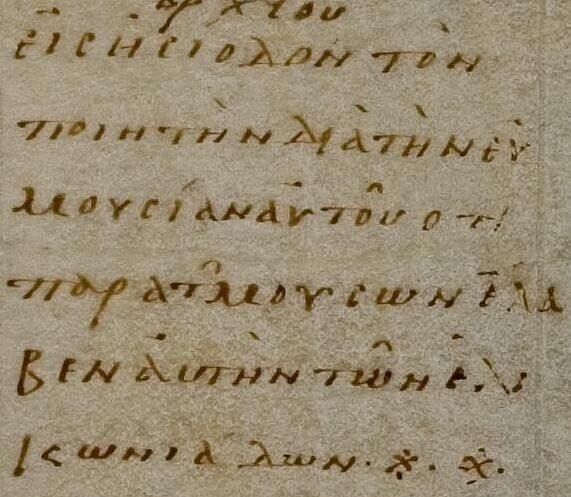 αρχιου
εἰς ἡσιοδον τὸν
ποιητὴν διὰ τὴν εὐ
μουσίαν αὐτοῦ οτι
παρα τ͂ μουσων ἔλα
βεν αὐτὴν τῶν ἑλι
κωνιάδων · ※ · ※ ·